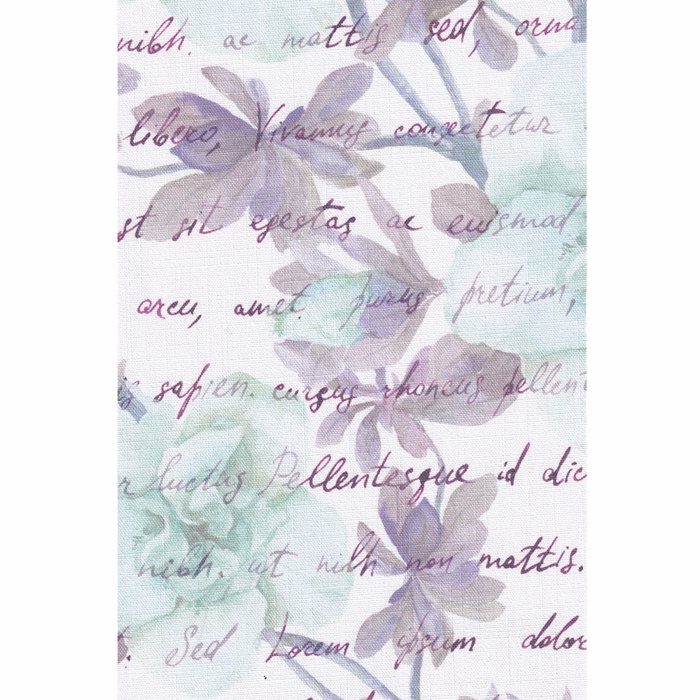 nibh. ac mattis sed, orna
libero, Vivamus consectetur
st sit egestas ac euismod
arcu, amet. purus pretium,
is sapien. cursus rhoncus pellent
r luctus Pellentesque id dic
nibh. ut nibh non mattis.
t. Sed Lorem ipsum dolor